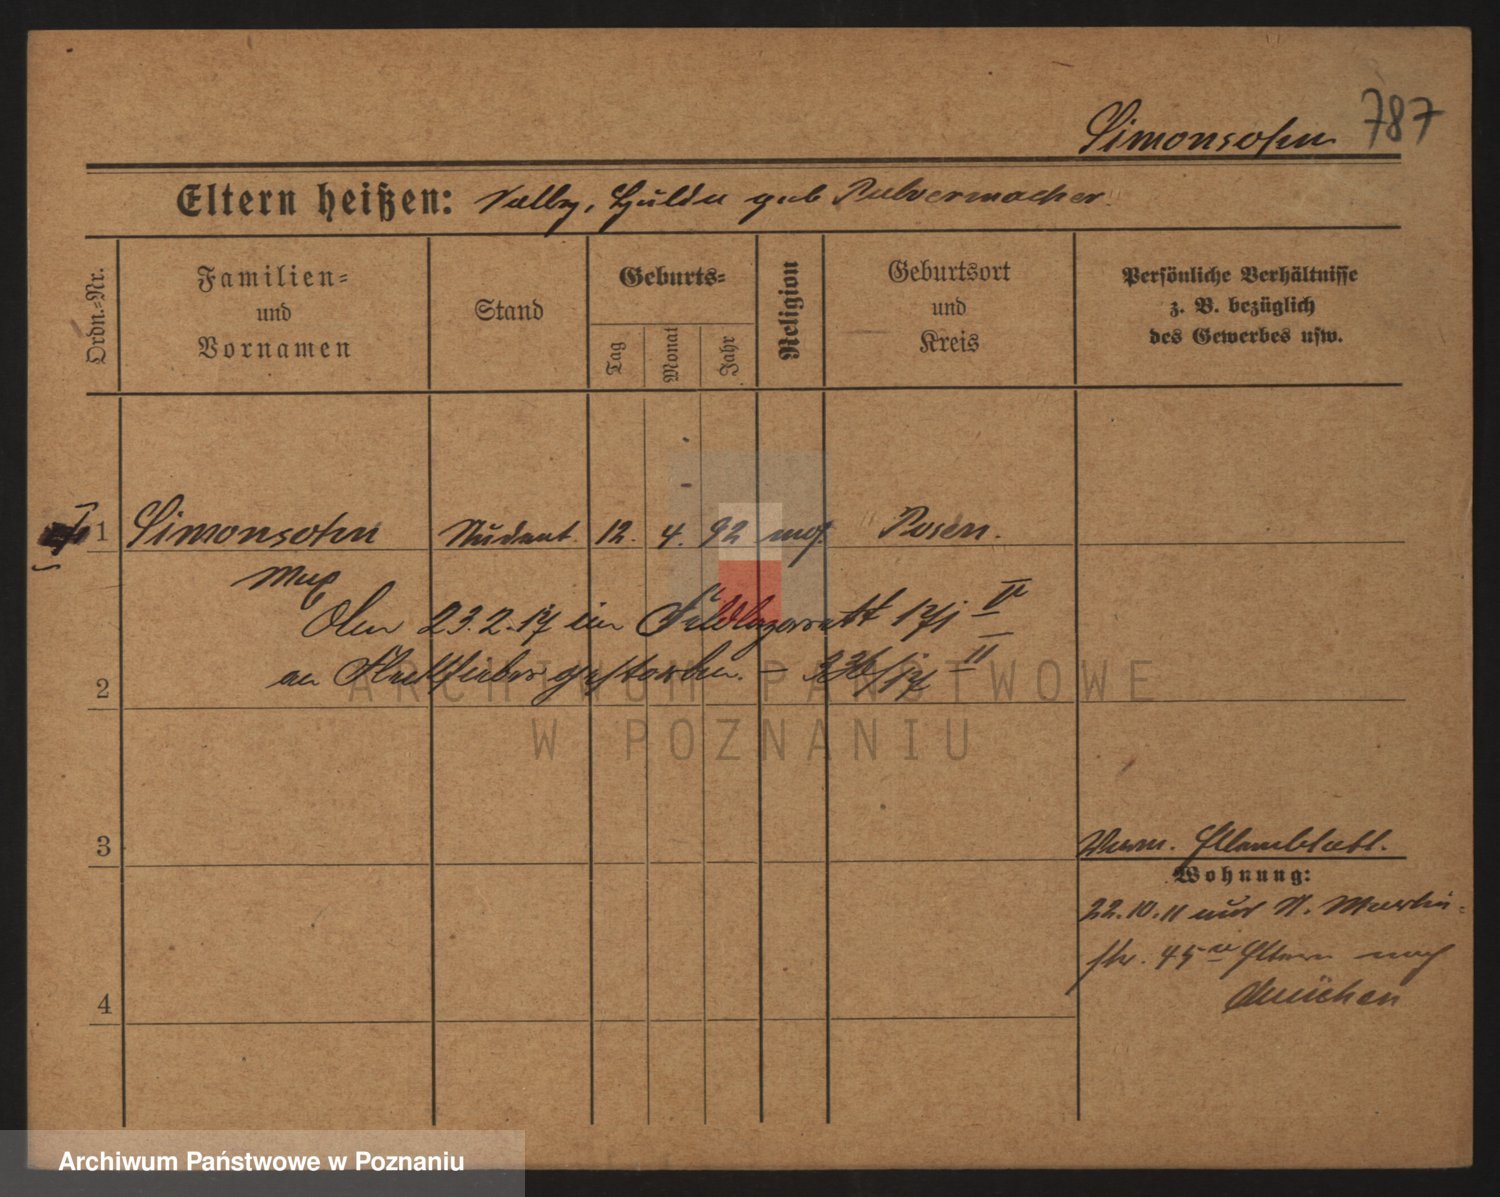 Simonsohn 787
Eltern heißen: Sally, Hulda geb Pulvermacher
Ordn.-Nr.
Familien-
und
Vornamen
Stand
Geburts-
Tag
Monat
Jahr
Religion
Geburtsort
und
Kreis
Persönliche Verhältnisse
z. B. bezüglich
des Gewerbes usw.
1 Simonsohn Student. 12. 4. 92 mos. Posen.
Max
Am 23.2.17 im Feldlazarett
an gestorben. —
2
3
Elternblatt.
Wohnung:
22.10.11 St. Martin-
str. 45 Eltern nach
München
4
ARCHIWUM PAŃSTWOWE
W POZNANIU
Archiwum Państwowe w Poznaniu